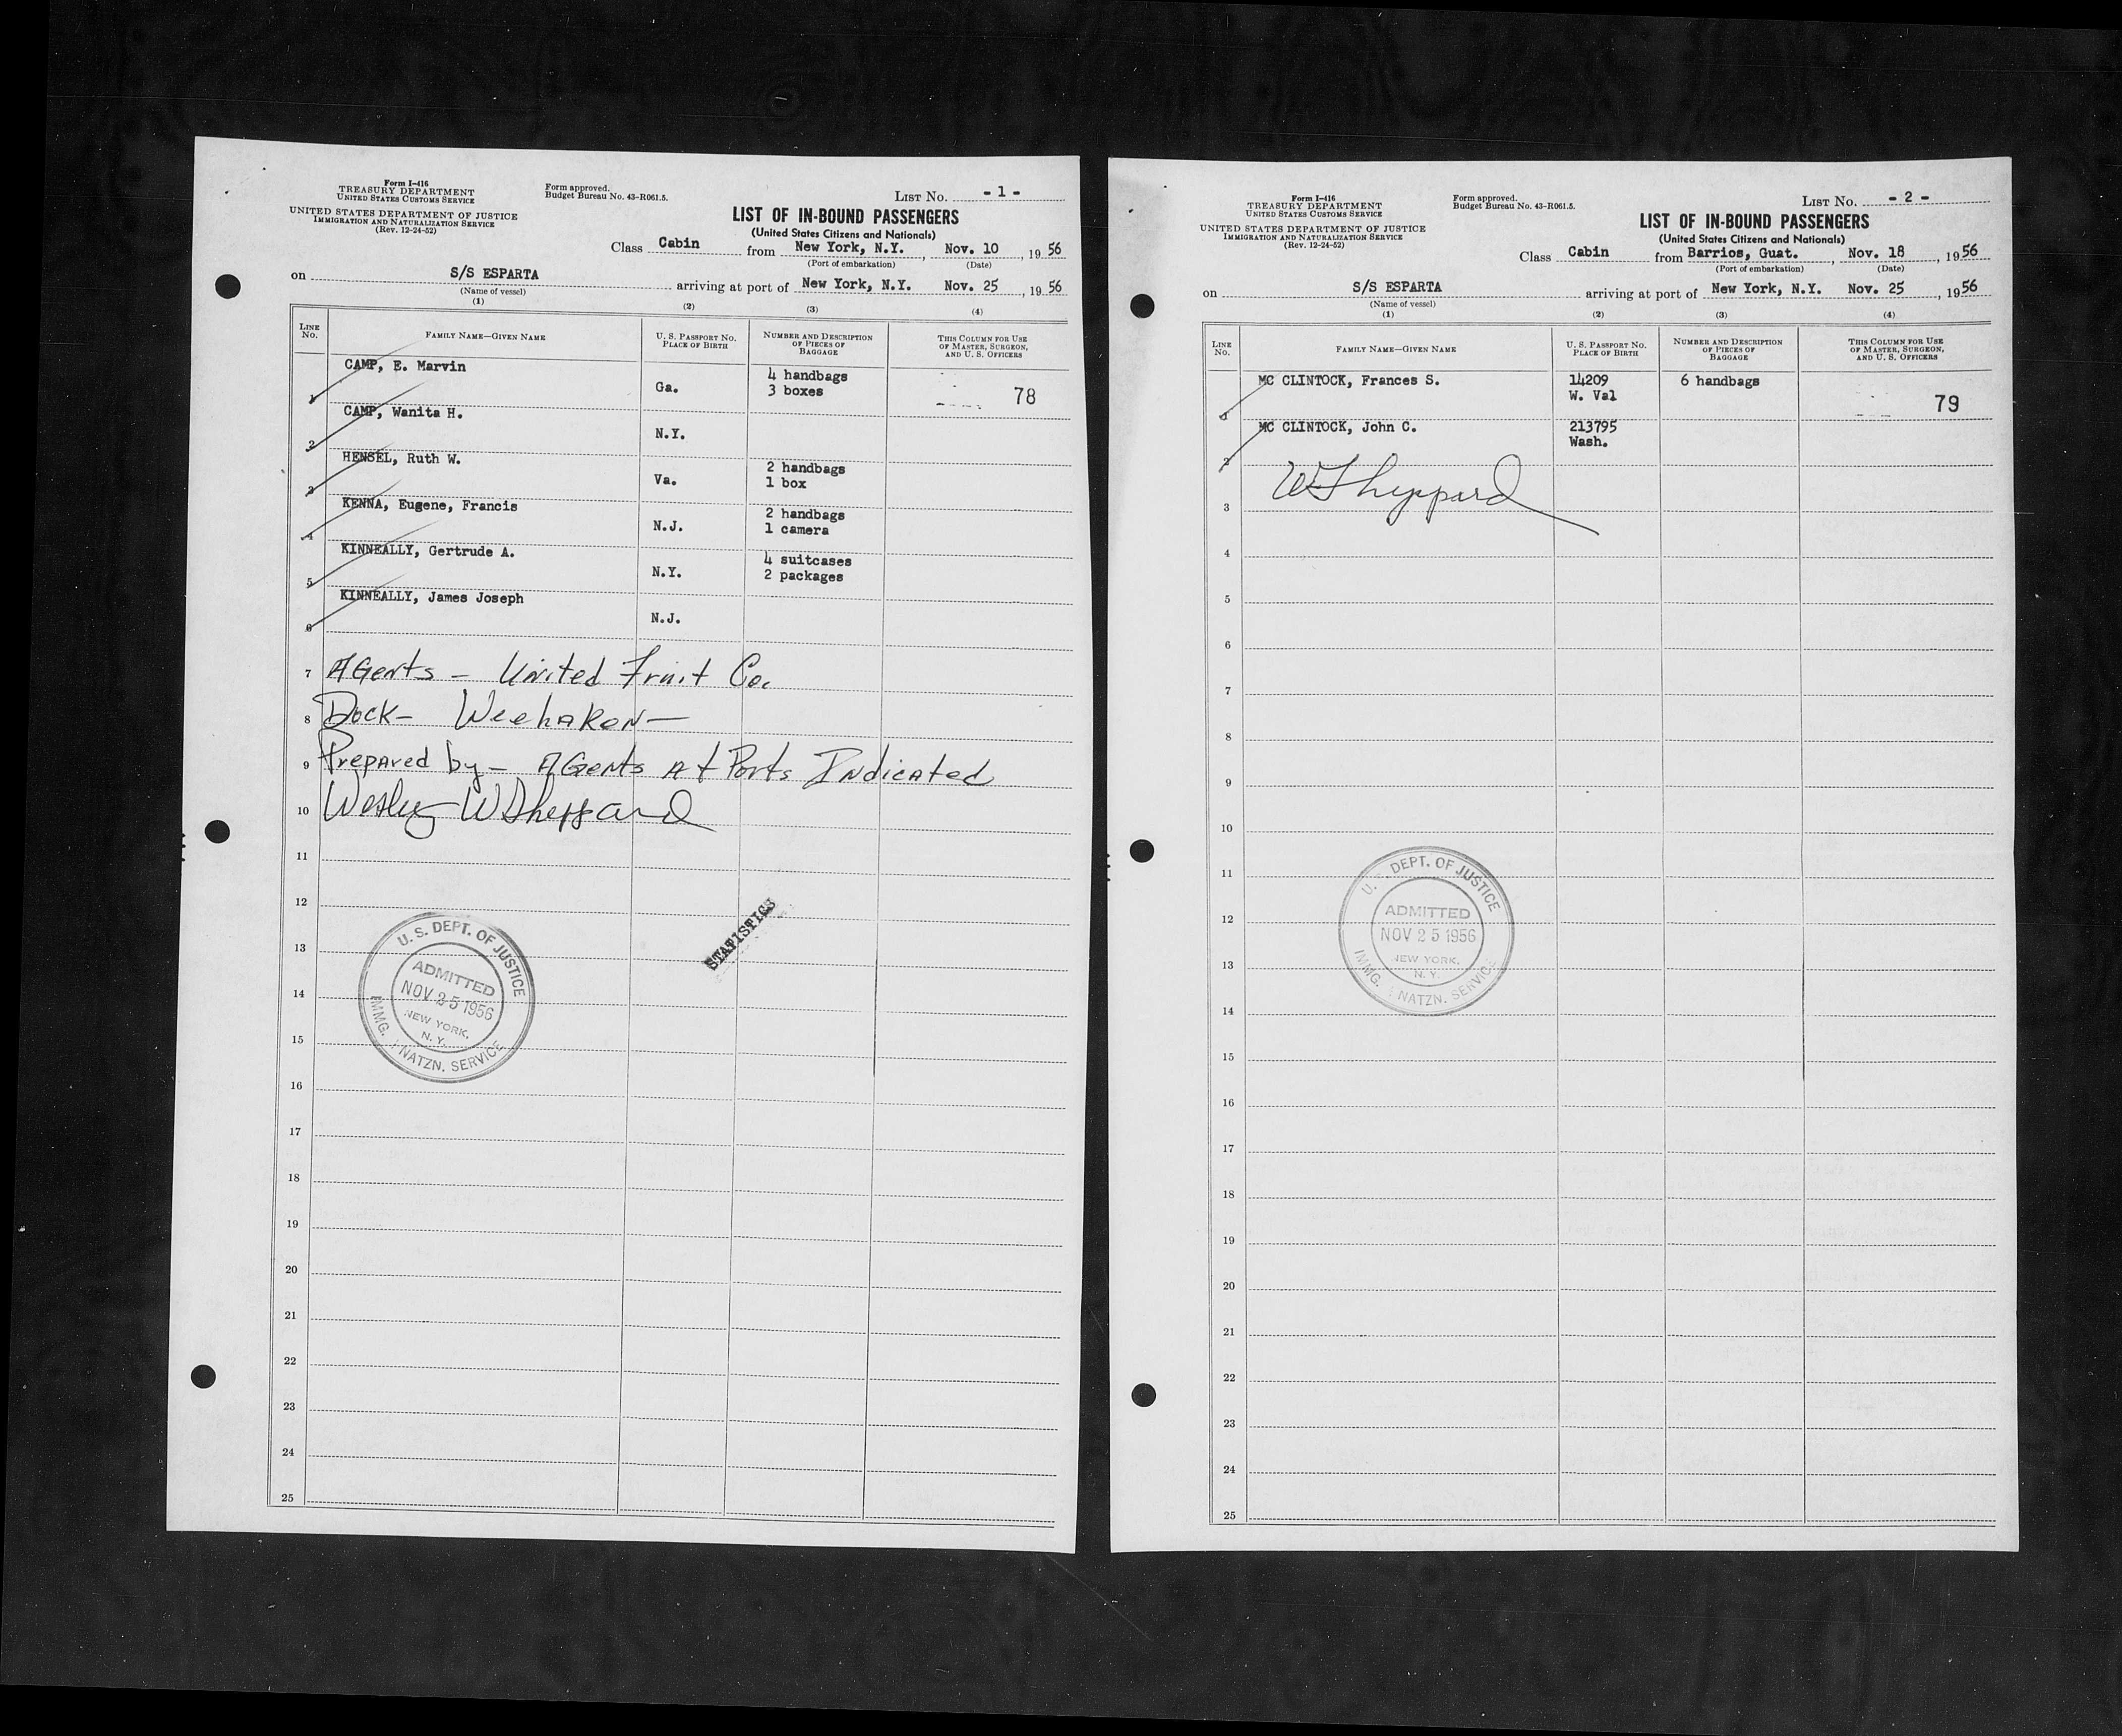 Form I-416
TREASURY DEPARTMENT
UNITED STATES CUSTOMS SERVICE
UNITED STATES DEPARTMENT OF JUSTICE
IMMIGRATION AND NATURALIZATION SERVICE
(Rev. 12-24-52)
Form approved.
Budget Bureau No. 43-R061.5.
LIST NO. - 1 -
LIST OF IN-BOUND PASSENGERS
(United States Citizens and Nationals)
Class Cabin from New York, N.Y., Nov. 10, 1956
(Port of embarkation) (Date)
on S/S ESPARTA arriving at port of New York, N.Y. Nov. 25, 1956
(Name of vessel)
(1) (2) (3) (4)
LINE NO. FAMILY NAME—GIVEN NAME U. S. PASSPORT NO. PLACE OF BIRTH NUMBER AND DESCRIPTION OF PIECES OF BAGGAGE THIS COLUMN FOR USE OF MASTER, SURGEON, AND U. S. OFFICERS
1 CAMP, E. Marvin Ga. 4 handbags 3 boxes 78
2 CAMP, Wanita H. N.Y.
3 HENSEL, Ruth W. Va. 2 handbags 1 box
4 KENNA, Eugene, Francis N.J. 2 handbags 1 camera
5 KINNEALLY, Gertrude A. N.Y. 4 suitcases 2 packages
6 KINNEALLY, James Joseph N.J.
7 AGents - United Fruit Co.
8 Dock- WeehaKen-
9 Prepared by - AGents At Ports Indicated
10 Wesley W Sheppard
11
12
STATISTICS
13
14
15
16
17
18
19
20
21
22
23
24
25
U. S. DEPT. OF JUSTICE
ADMITTED
NOV 25 1956
NEW YORK,
N. Y.
IMMG. NATZN. SERVICE
Form I-416
TREASURY DEPARTMENT
UNITED STATES CUSTOMS SERVICE
UNITED STATES DEPARTMENT OF JUSTICE
IMMIGRATION AND NATURALIZATION SERVICE
(Rev. 12-24-52)
Form approved.
Budget Bureau No. 43-R061.5.
LIST NO. - 2 -
LIST OF IN-BOUND PASSENGERS
(United States Citizens and Nationals)
Class Cabin from Barrios, Guat., Nov. 18, 1956
(Port of embarkation) (Date)
on S/S ESPARTA arriving at port of New York, N.Y. Nov. 25, 1956
(Name of vessel)
(1) (2) (3) (4)
LINE NO. FAMILY NAME—GIVEN NAME U. S. PASSPORT NO. PLACE OF BIRTH NUMBER AND DESCRIPTION OF PIECES OF BAGGAGE THIS COLUMN FOR USE OF MASTER, SURGEON, AND U. S. OFFICERS
1 MC CLINTOCK, Frances S. 14209 W. Val 6 handbags 79
2 MC CLINTOCK, John C. 213795 Wash.
W Sheppard
3
4
5
6
7
8
9
10
11
12
13
14
15
16
17
18
19
20
21
22
23
24
25
U. S. DEPT. OF JUSTICE
ADMITTED
NOV 25 1956
NEW YORK,
N. Y.
IMMG. NATZN. SERVICE